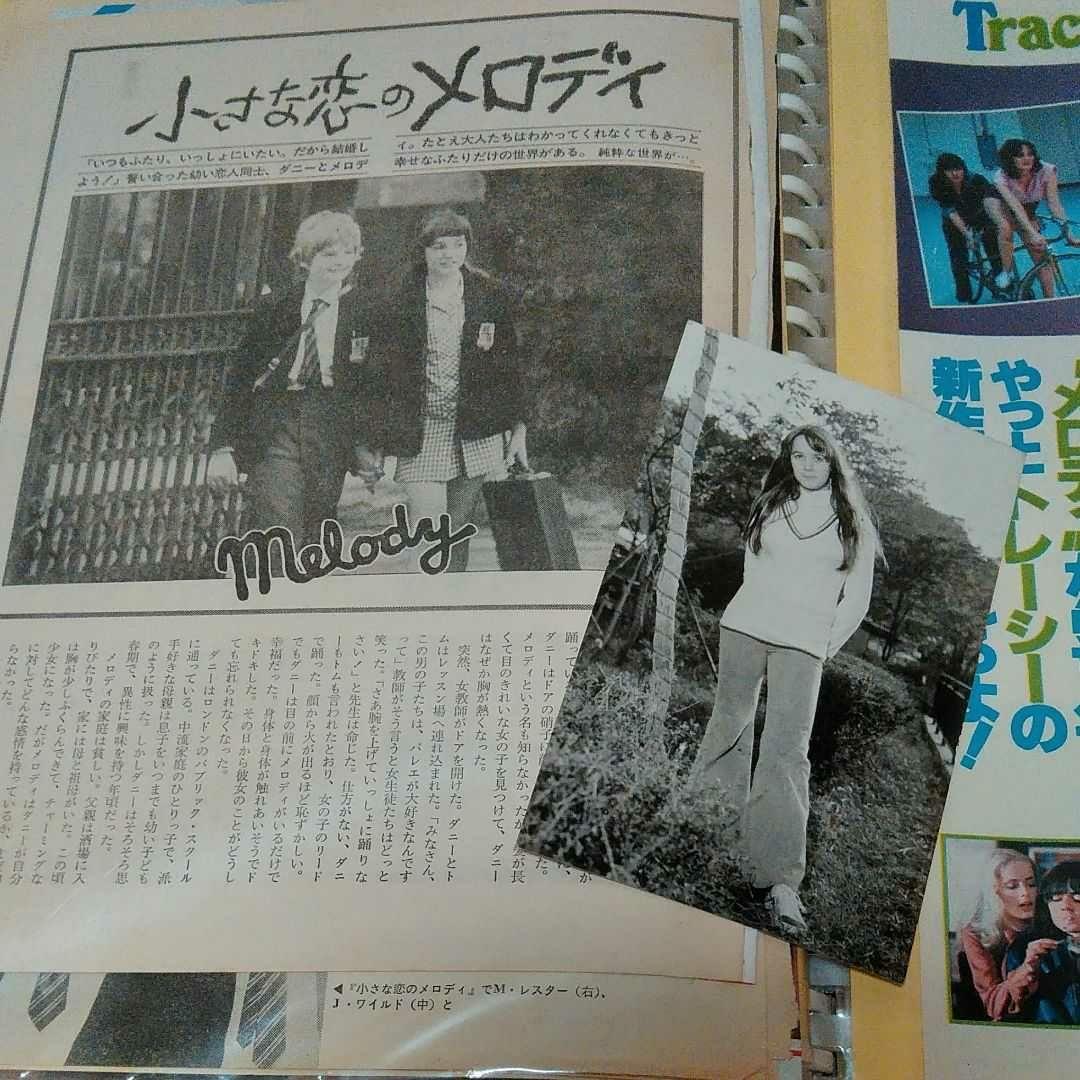 小さな恋のメロディ
「いつもふたり、いっしょにいたい。だから結婚し
よう！」誓い合った幼い恋人同士、ダニーとメロデ
ィ。たとえ大人たちはわかってくれなくてもきっと
幸せなふたりだけの世界がある。 純粋な世界が…。
Melody
踊ってい
ダニーはドアの硝子に
メロディという名も知らなかったが
くて目のきれいな女の子を見つけて、ダニー
はなぜか胸が熱くなった。
突然、女教師がドアを開けた。ダニーとト
ムはレッスン場へ連れ込まれた。「みなさん、
この男の子たちは、バレエが大好きなんです
って」教師がそう言うと女生徒たちはどっと
笑った。「さあ腕を上げていっしょに踊りな
さい！」と先生は命じた。仕方がない、ダニ
ーもトムも言われたとおり、女の子のリード
で踊った。顔から火が出るほど恥ずかしい。
でもダニーは目の前にメロディがいるだけで
幸福だった。身体と身体が触れあいそうでド
キドキした。その日から彼女のことがどうし
ても忘れられなくなった。
ダニーはロンドンのパブリック・スクール
に通っている。中流家庭のひとりっ子で、派
手好きな母親は息子をいつまでも幼い子ども
のように扱った。しかしダニーはそろそろ思
春期で、異性に興味を持つ年頃だった。
メロディの家庭は貧しい。父親は酒場に入
りびたりで、家には母と祖母がいた。この頃
は胸が少しふくらんできて、チャーミングな
少女になった。だがメロディはダニーが自分
に対してどんな感情を持っているか、
らなかった。
◀『小さな恋のメロディ』でM・レスター（右）、
J・ワイルド（中）と
Trac
トレーシーの
新作